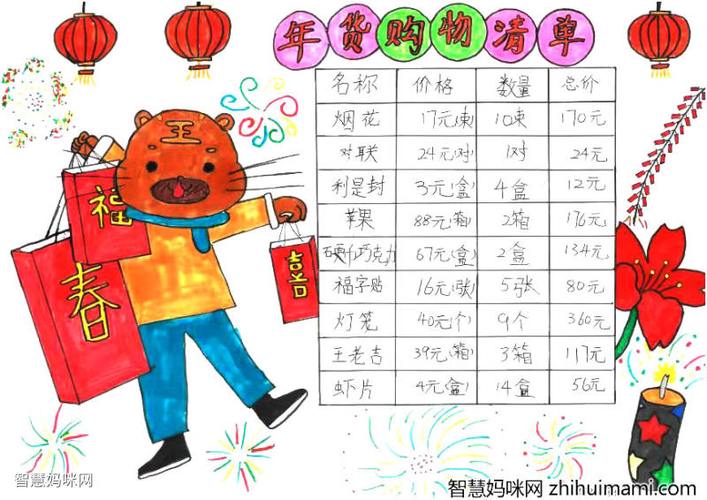 年货购物清单
名称 价格 数量 总价
烟花 17元(束) 10束 170元
对联 24元(对) 1对 24元
利是封 3元(盒) 4盒 12元
苹果 88元(箱) 2箱 176元
硬币巧克力 67元(盒) 2盒 134元
福字贴 16元(张) 5张 80元
灯笼 40元(个) 9个 360元
王老吉 39元(箱) 3箱 117元
虾片 4元(盒) 14盒 56元
王
福
春
喜
智慧妈咪网
智慧妈咪网 zhihuimami.com